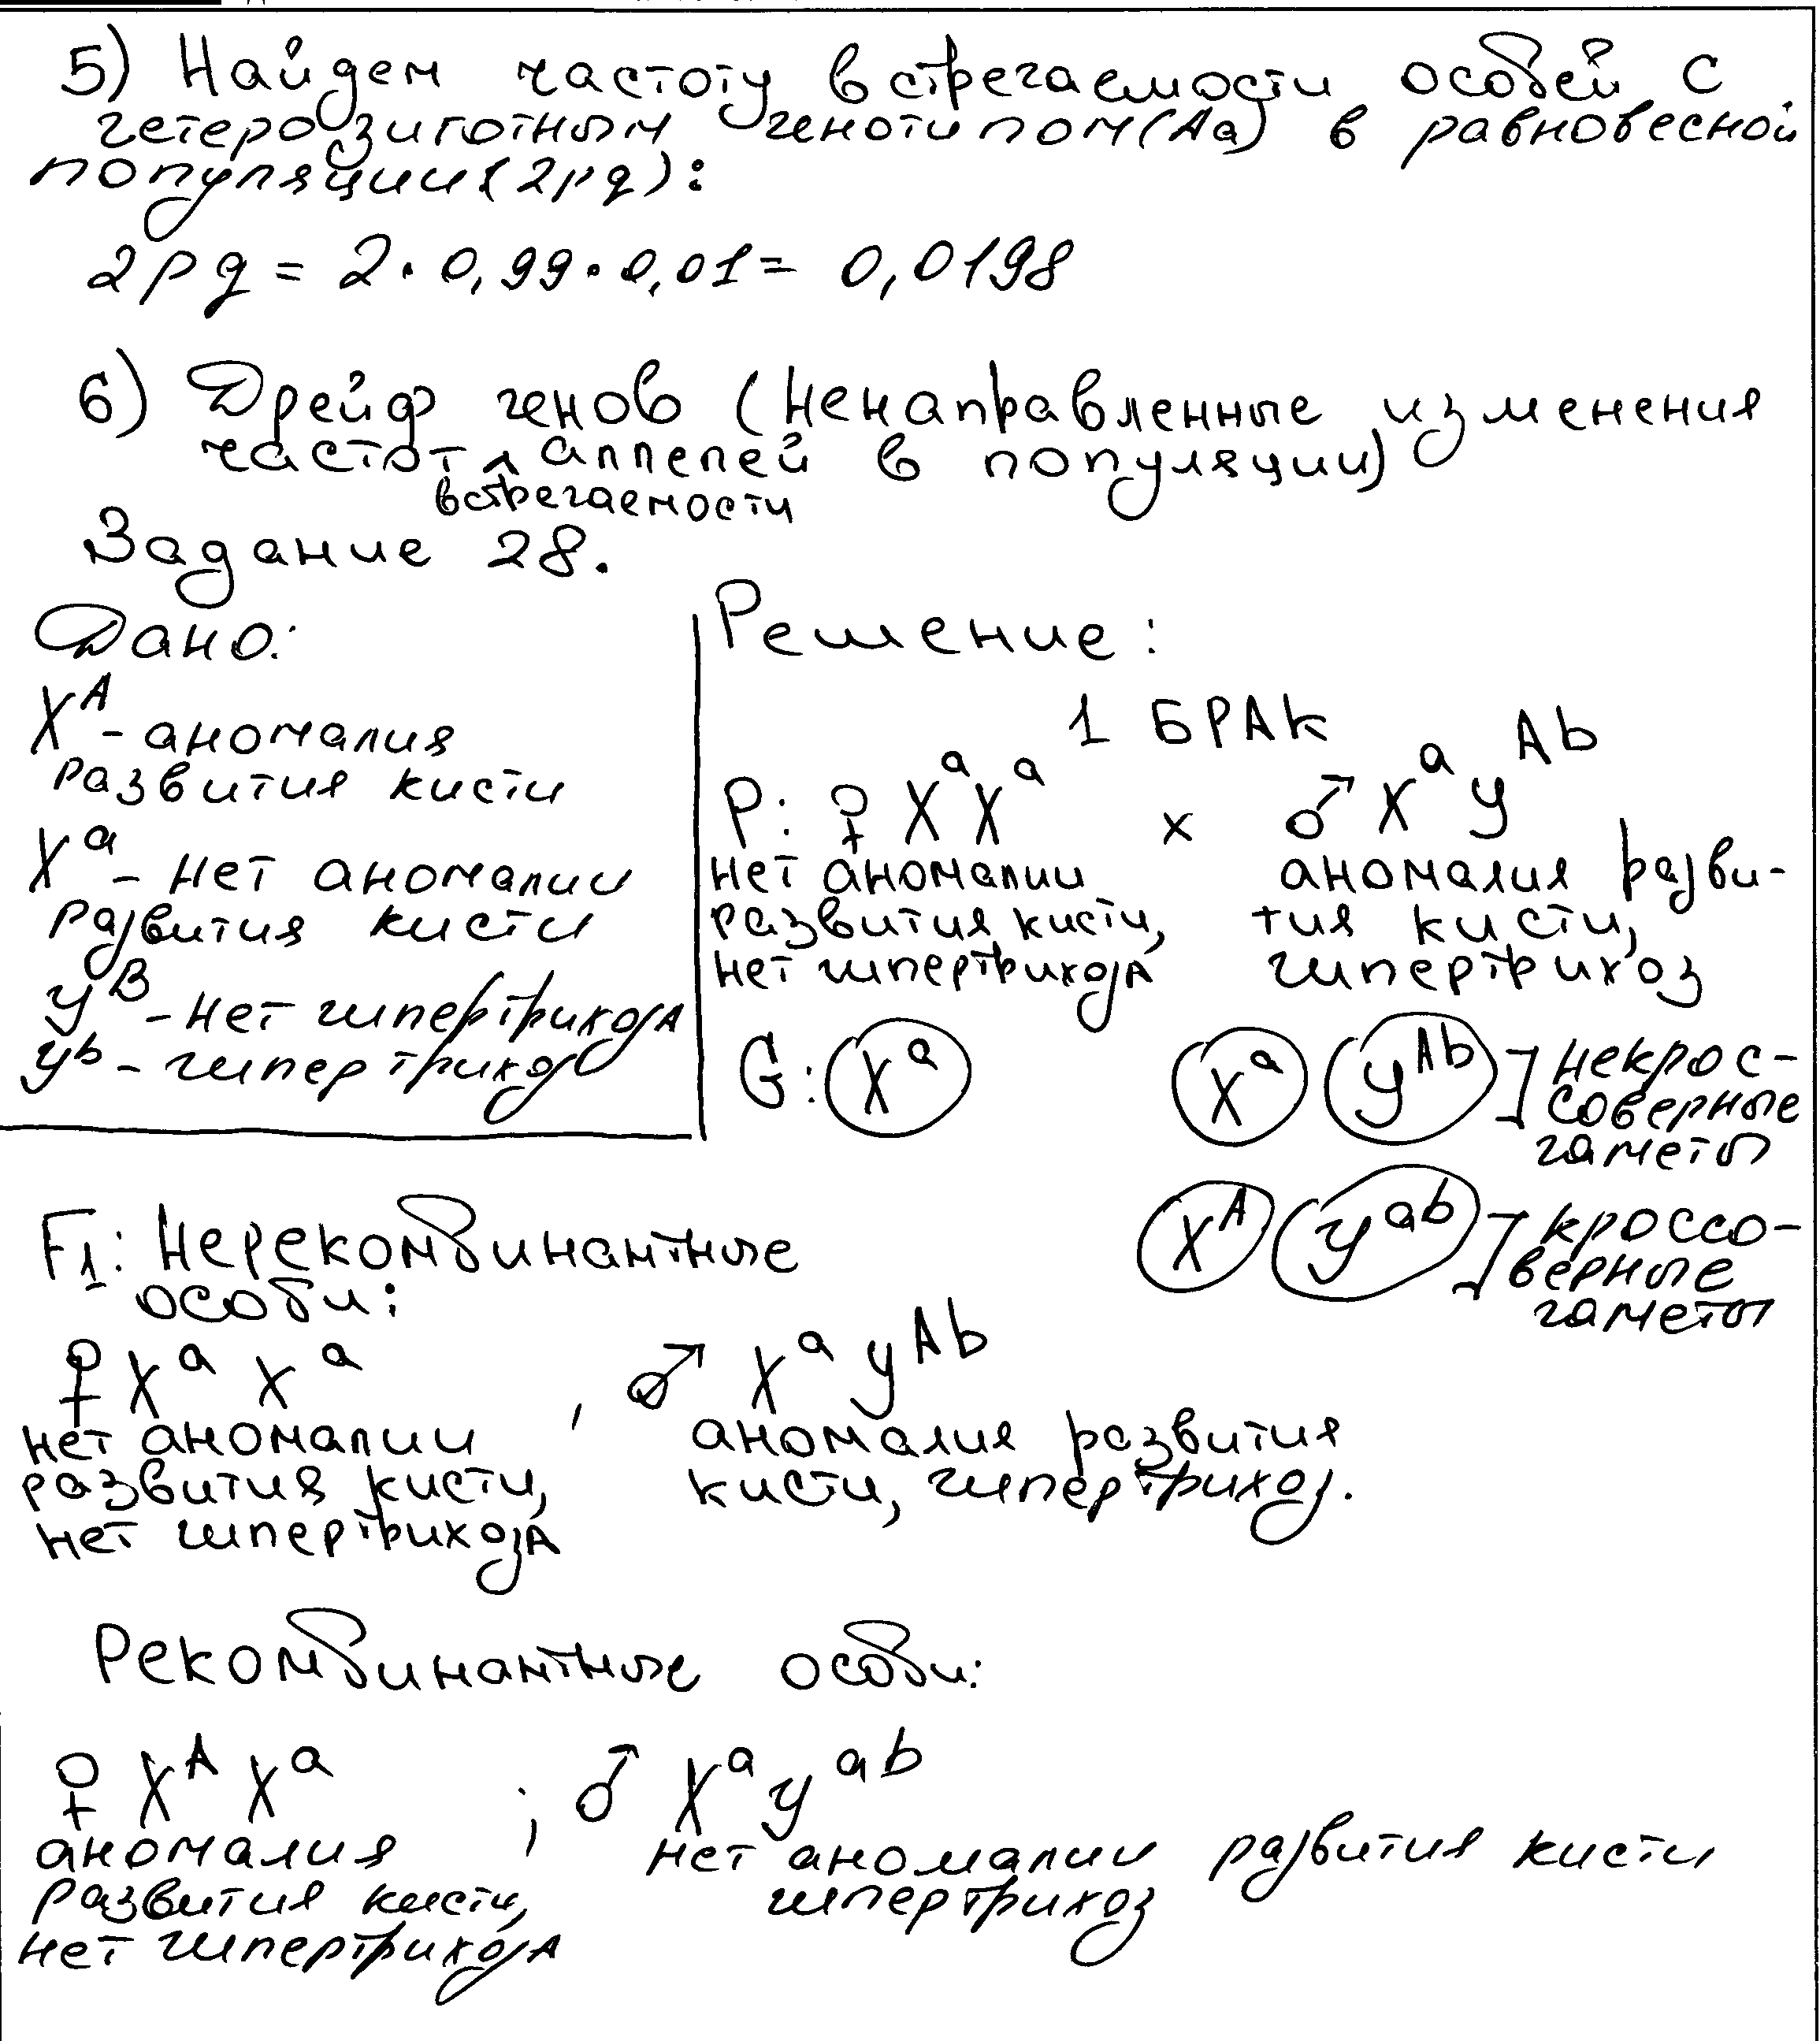 5) Найдем частоту встречаемости особей с
гетерозиготным генотипом(Aa) в равновесной
популяции(2pq):
2pq = 2·0,99·0,01= 0,0198
6) Дрейф генов (ненаправленные изменения
частот аллелей в популяции)
встречаемости
Задание 28.
Дано:
X^A - аномалия
развития кисти
X^a - нет аномалии
развития кисти
Y^B - нет гипертрихоза
Y^b - гипертрихоз
Решение:
1 БРАК
P: ♀ X^a X^a × ♂ X^a Y^Ab
нет аномалии
развития кисти,
нет гипертрихоза
аномалия разви-
тия кисти,
гипертрихоз
G: X^a
X^a Y^Ab ] некрос-
соверные
гаметы
X^A Y^ab ] кроссо-
верные
гаметы
F1: Нерекомбинантные
особи:
♀ X^a X^a , ♂ X^a Y^Ab
нет аномалии
развития кисти,
нет гипертрихоза
аномалия развития
кисти, гипертрихоз.
Рекомбинантные особи:
♀ X^A X^a ; ♂ X^a Y^ab
аномалия
развития кисти,
нет гипертрихоза
нет аномалии развития кисти
гипертрихоз